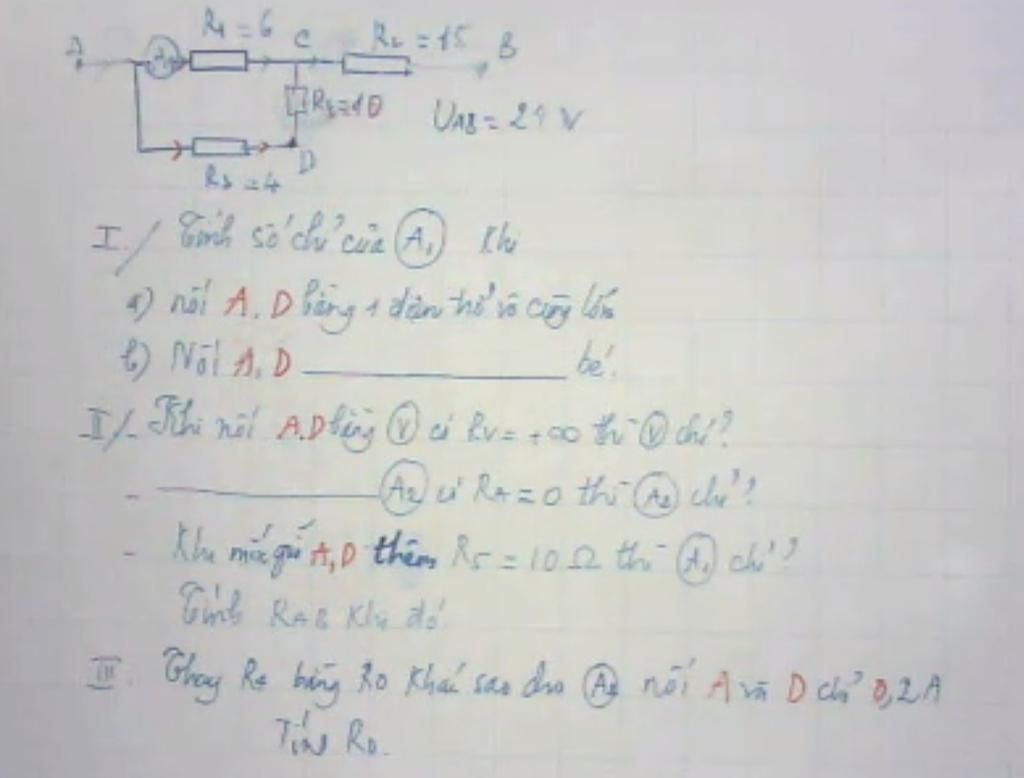 R1 = 6 C R2 = 15 B
A
R3=10 UAB = 24 V
D
= 4
I./ Tính số chỉ của A1 khi
a) nối A, D bằng 1 điện trở vô cùng lớn
b) Nối A, D ______ bé.
II/- Khi nối A,D bằng V có RV = +∞ thì V chỉ?
- ______ A2 có RA = 0 thì A2 chỉ?
- Khi mắc A,D thêm R5 = 10 Ω thì A1 chỉ?
Tính RAB khi đó
III. Thay bằng R0 khác sao cho A2 nối A và D chỉ 0,2A
Tính R0.